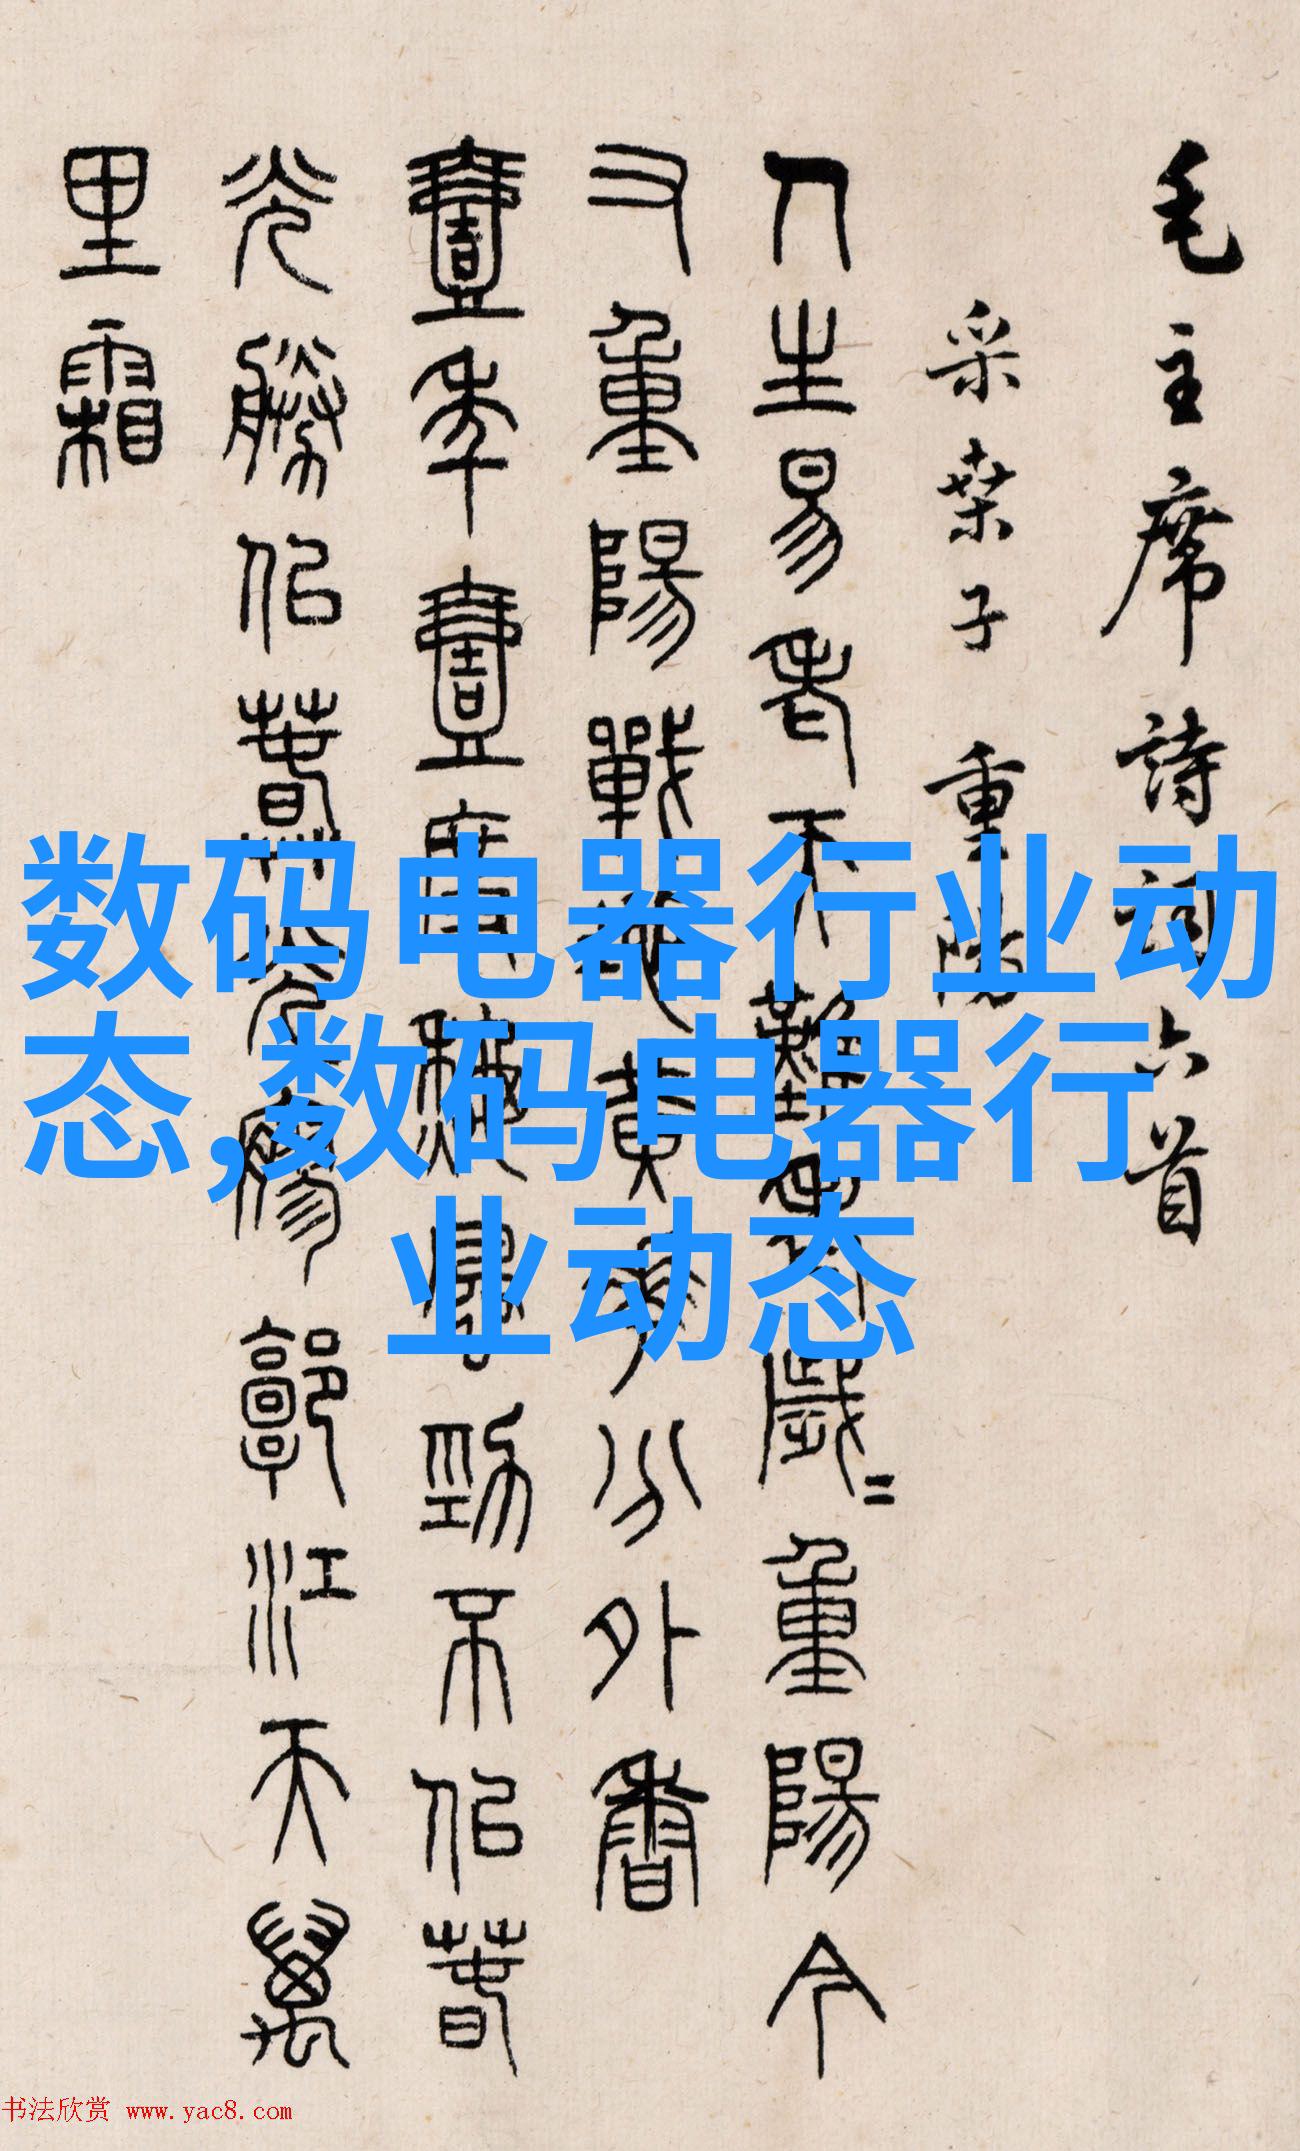 数码电器行业动
态,数码电器行
业动态
毛主席詩詞六首
采桑子 重陽
人生易老天難老歲=重陽今
又重陽戰地黃華分外香
壹年壹度秋風勁不似春
光勝似春光郭江天萬
里霜
书法欣赏 www.yac8.com